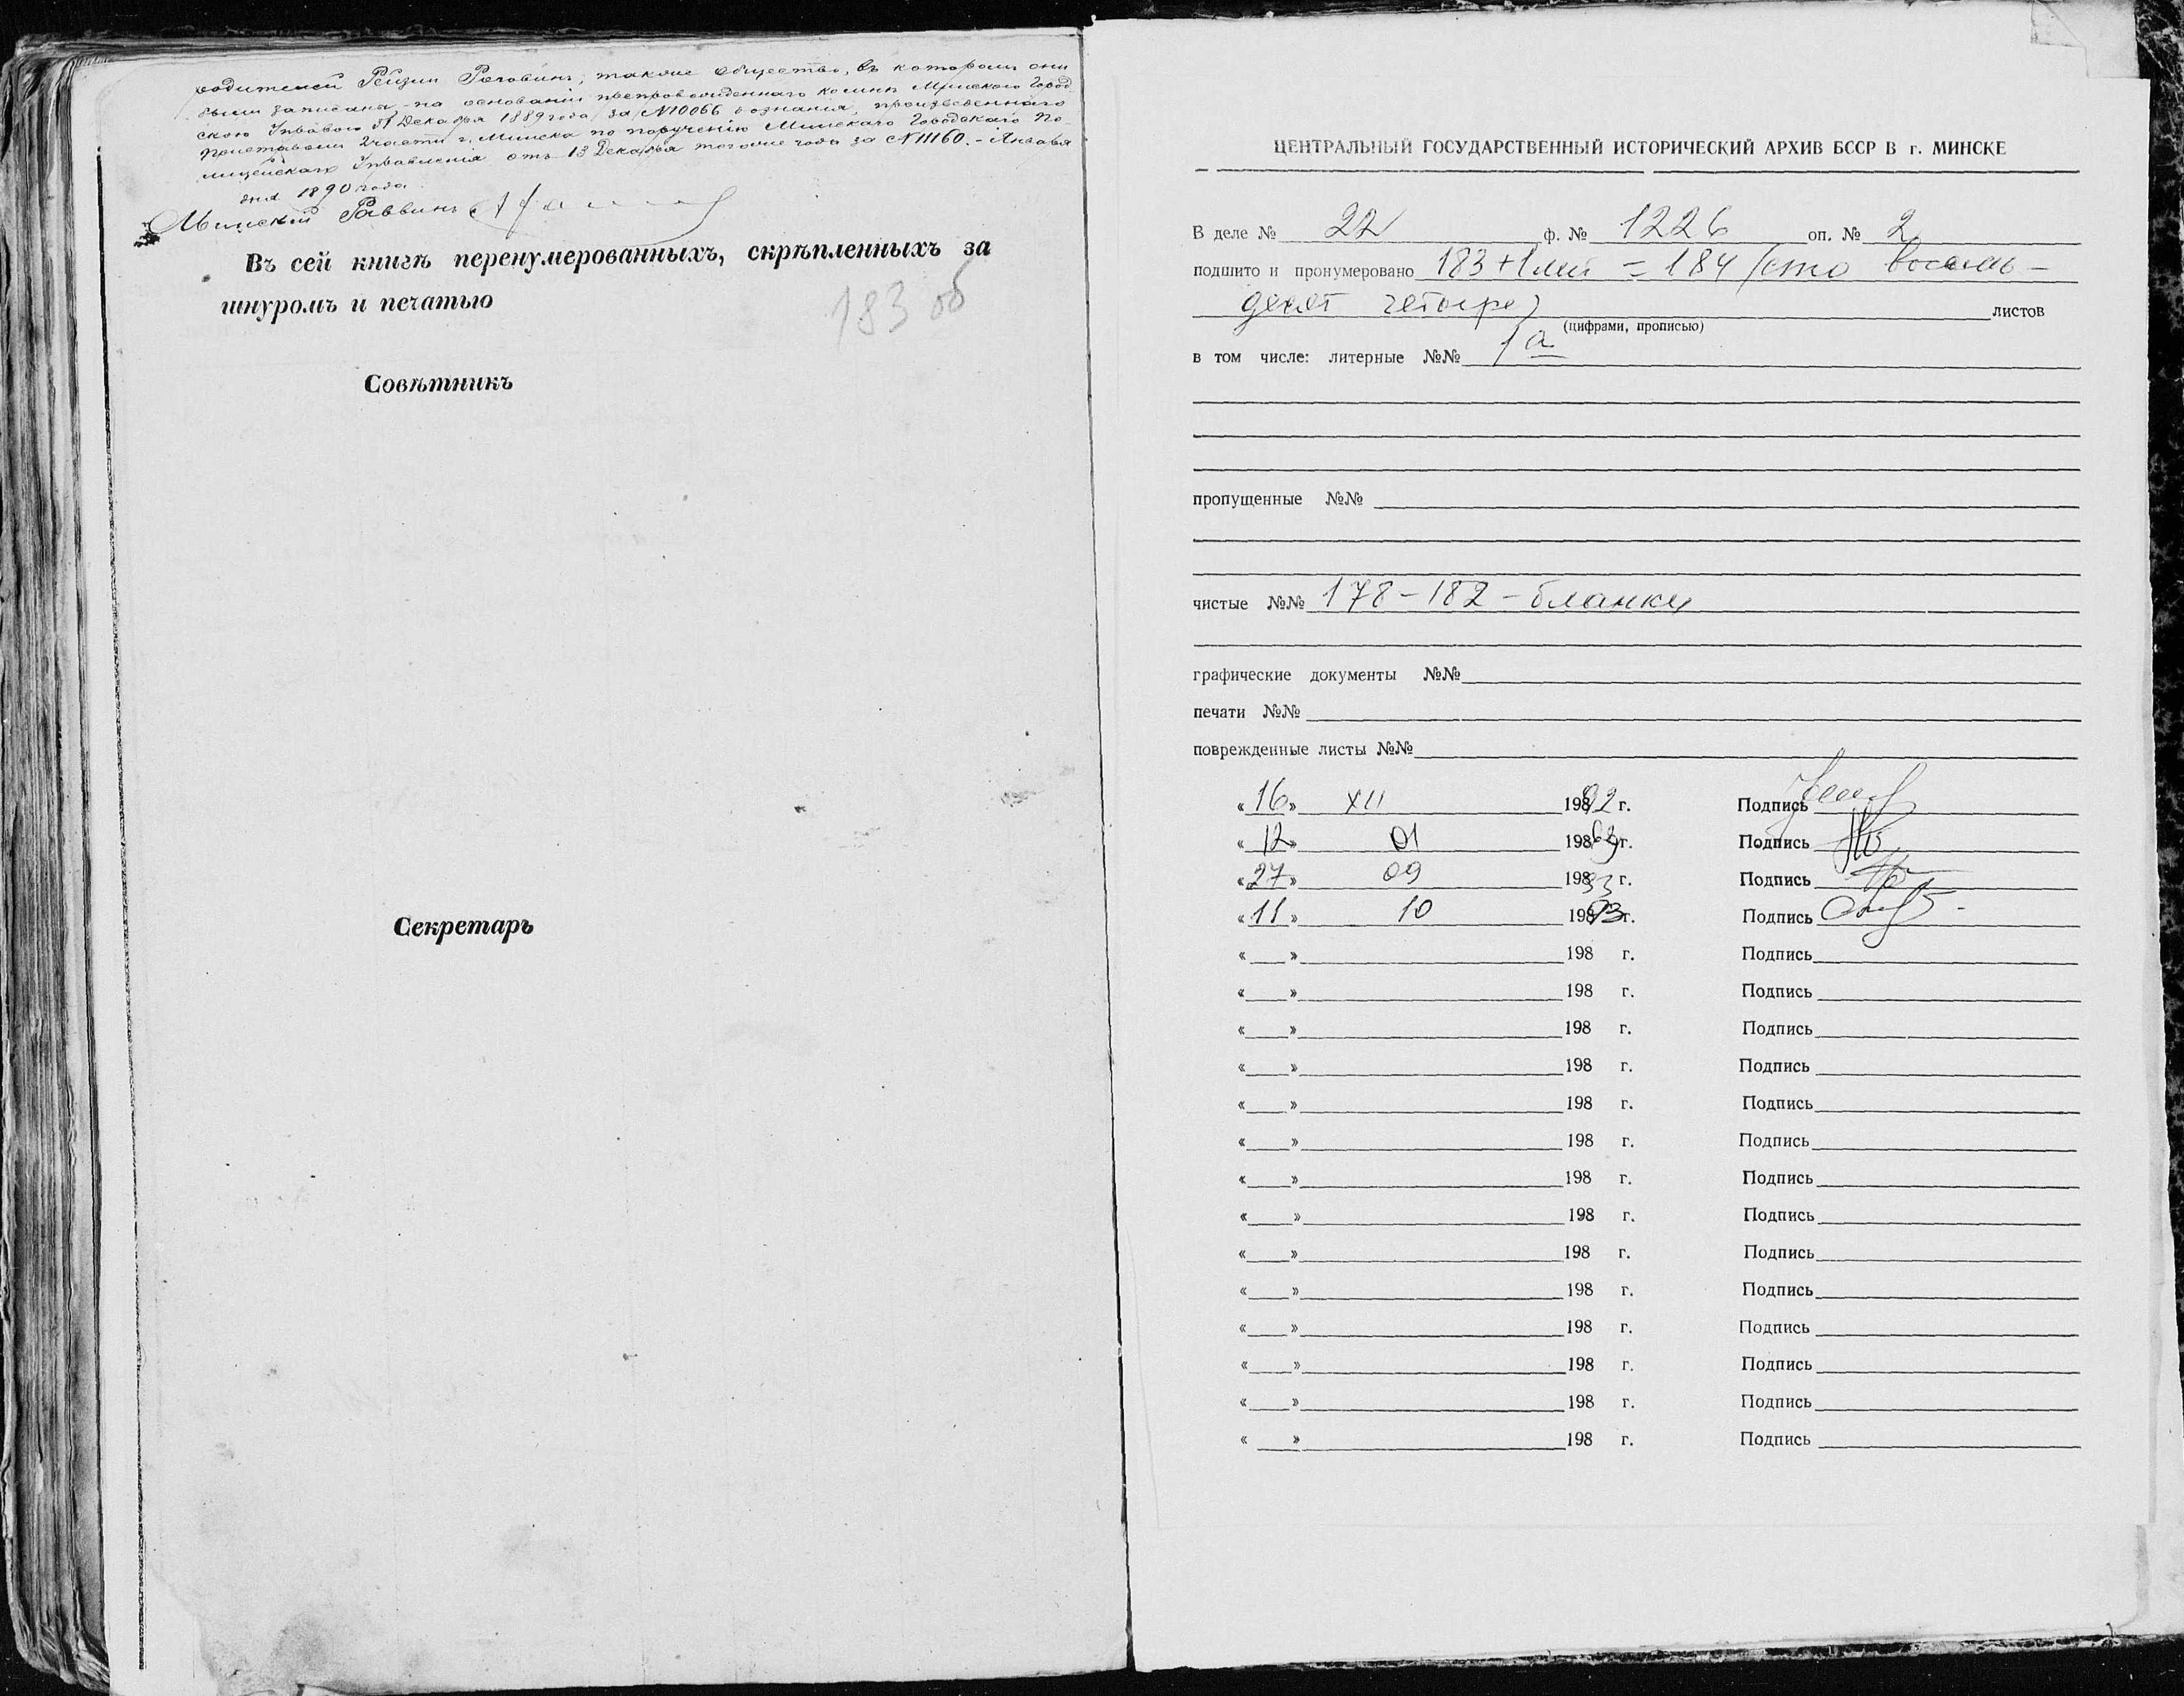 родителей Рейзи Роговинъ, также общество, въ которомъ они
были записаны - на основаніи препровожденнаго ко мнѣ Минскою Город
скою Управою 31 Декабря 1889 года за №10066 дознанія, произведеннаго
Приставомъ 2 части г. Минска по порученію Минскаго Городскаго По-
лицейскаго Управленія отъ 13 Декабря того же года за №11160. - Января
дня 1890 года.
Минскій Раввинъ
Въ сей книгѣ перенумерованныхъ, скрѣпленныхъ за
шнуромъ и печатью
183 об
Совѣтникъ
Секретарь
ЦЕНТРАЛЬНЫЙ ГОСУДАРСТВЕННЫЙ ИСТОРИЧЕСКИЙ АРХИВ БССР В г. МИНСКЕ
В деле № 22 ф. № 1226 оп. № 2
подшито и пронумеровано 183+1 = 184 /сто восемь-
десят четыре) листов
(цифрами, прописью)
в том числе: литерные №№ 1а
пропущенные №№
чистые №№ 178-182 - бланки
графические документы №№
печати №№
поврежденные листы №№
«16» XII 198 92 г. Подпись
«12» 01 198 г. Подпись
«27» 09 198 93 г. Подпись
«11» 10 198 93 г. Подпись
« » 198 г. Подпись
« » 198 г. Подпись
« » 198 г. Подпись
« » 198 г. Подпись
« » 198 г. Подпись
« » 198 г. Подпись
« » 198 г. Подпись
« » 198 г. Подпись
« » 198 г. Подпись
« » 198 г. Подпись
« » 198 г. Подпись
« » 198 г. Подпись
« » 198 г. Подпись
« » 198 г. Подпись